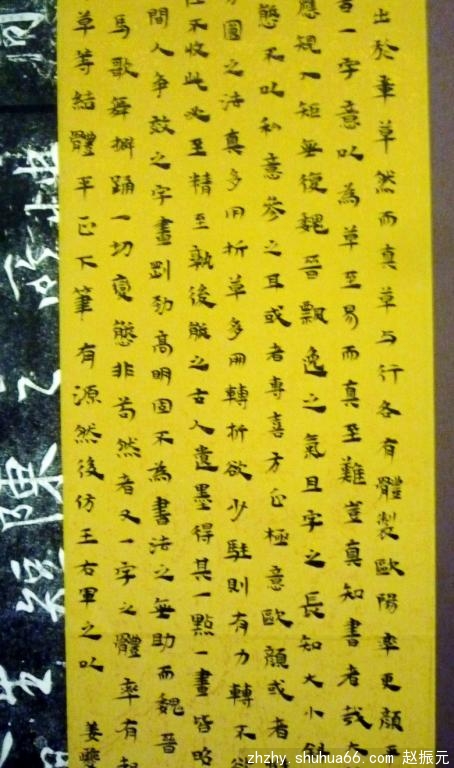 出於章草然而真草与行各有體製歐陽率更顏
一字意以為草至易而真至難豈真知書者哉
應規入矩無復魏晉飄逸之氣且字之長知大小
態不以私意參之耳或者專喜方正極意歐顏或者
圓之法真多用折草多用轉折欲少駐則有力轉不欲
不收此必至精至熟後能之古人遺墨得其一點一畫皆略
間人争效之字畫勁高明固不為書法之無助而魏晉
馬歌舞擗踊一切變態非苟然者又一字之體率有起
草等結體平正下筆有源然後仿王右軍之以 姜夔
zhzhy.shuhua66.com 赵振元